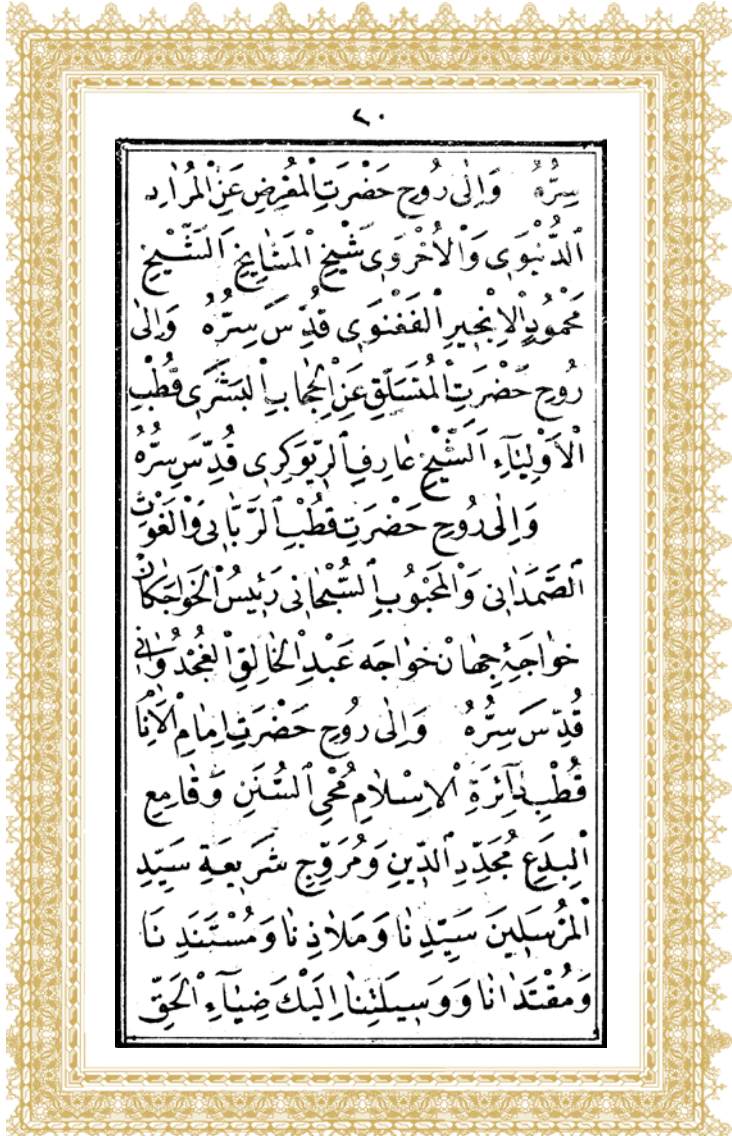 ٢٠
سِرُّهُ وَاِلٰى رُوحِ حَضْرَتِ الْمُعْرِضِ عَنِ الْمُرٰادِ
الدُّنْيَوِى وَالْاُخْرَوِى شَيْخِ الْمَشٰايِخِ اَلشَّيْخِ
مَحْمُودِ الْاِنْجِيرِ الْفَغْنَوِى قُدِّسَ سِرُّهُ وَاِلٰى
رُوحِ حَضْرَتِ الْمُنْسَلِّقِ عَنِ الْحِجٰابِ الْبَشَرِى قُطْبِ
الْاَوْلِيٰآءِ اَلشَّيْخِ عٰارِفِ الرِّيوَكَرِى قُدِّسَ سِرُّهُ
وَاِلٰى رُوحِ حَضْرَتِ قُطْبِ الرَّبّٰانِى وَالْغَوْثِ
الصَّمَدٰانِى وَالْمَحْبُوبِ السُّبْحٰانِى رَئِيسُ الْخَوٰاجَكٰانْ
خوٰاجَۀِ جِهٰانْ خوٰاجَه عَبْدِ الْخٰالِقِ الْغُجْدُوٰانِى
قُدِّسَ سِرُّهُ وَاِلٰى رُوحِ حَضْرَتِ اِمٰامِ الْاَنٰامْ
قُطْبِ دٰآئِرَةِ الْاِسْلٰامِ مُحْىِ السُّنَنِ وَقٰامِعِ
الْبِدَعِ مُجَدِّدِ الدِّينِ وَمُرَوِّجِ شَرِيعَةِ سَيِّدِ
الْمُرْسَلِينَ سَيِّدِنٰا وَمَلٰاذِنٰا وَمُسْتَنَدِنَا
وَمُقْتَدٰانٰا وَوَسِيلَتِنٰا اِلَيْكَ ضِيٰآءِ الْحَقِّ